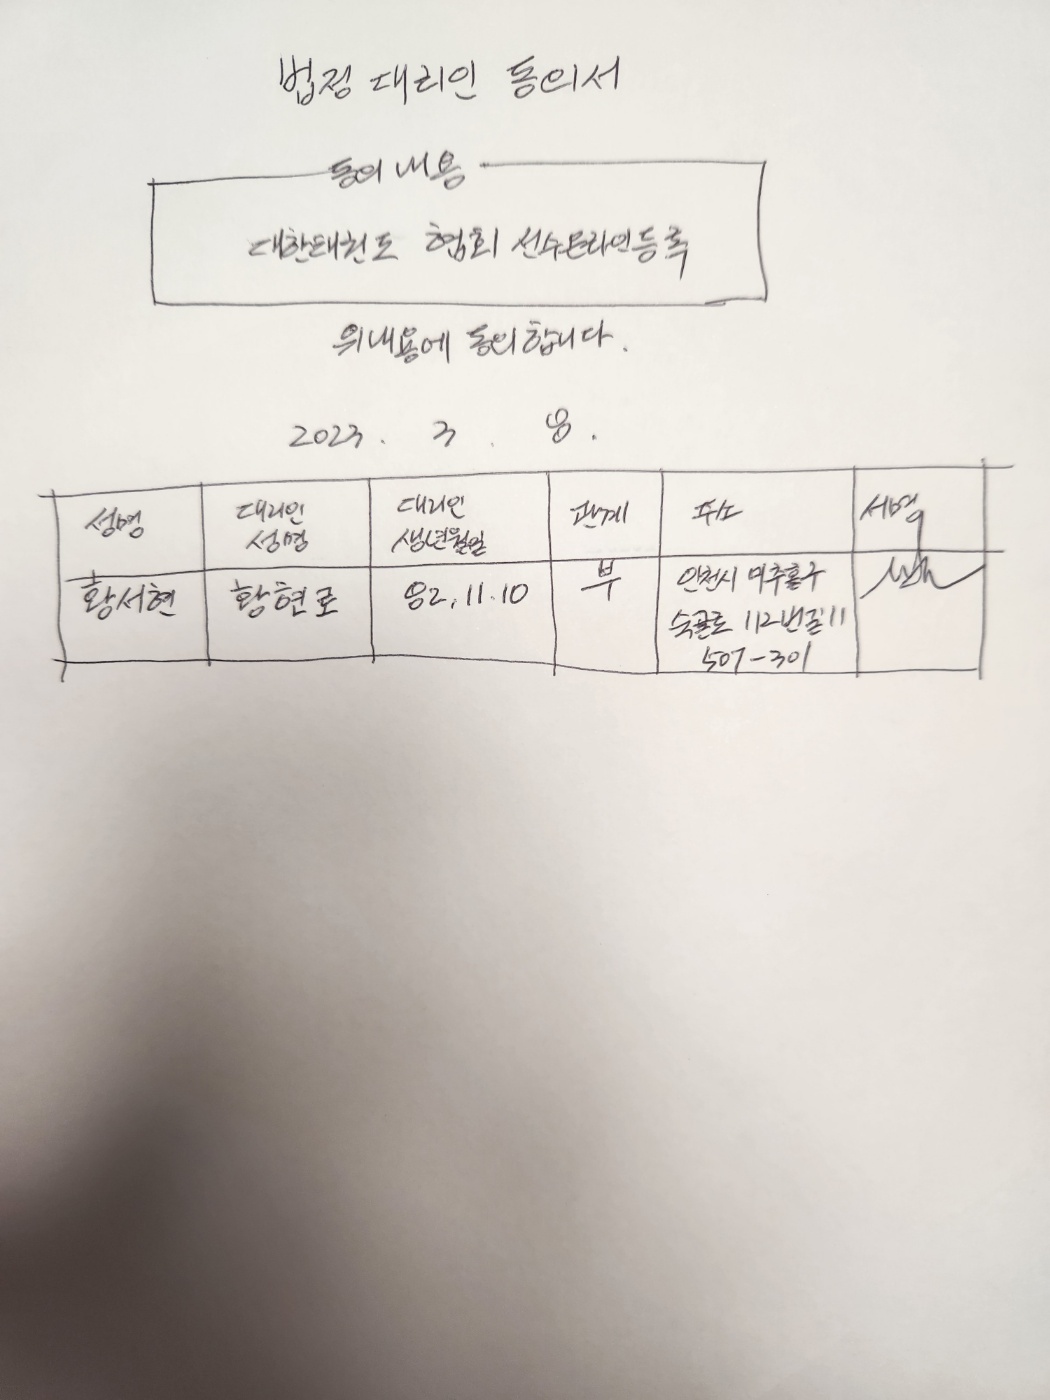 법정 대리인 동의서
동의 내용
대한태권도 협회 선수온라인등록
위내용에 동의합니다.
2023. 3. 8.
성명 대리인 성명 대리인 생년월일 관계 주소 서명
황서현 황현로 82.11.10 부 인천시 미추홀구
숙골로 112번길11
507-301